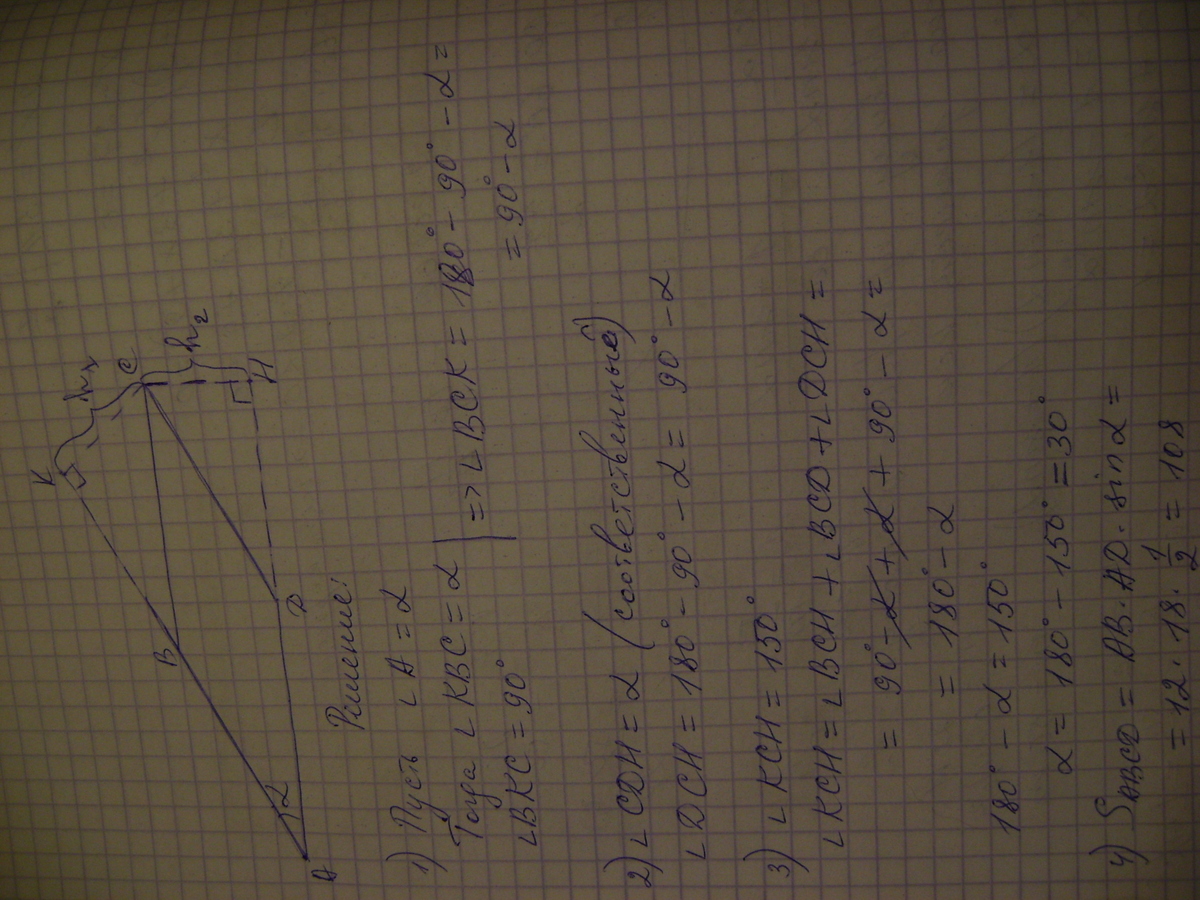 K
h₁
C
h₂
H
B
D
A
α
Решение:
1) Пусть ∠A = α
Тогда ∠KBC = α
∠BKC = 90°
=> ∠BCK = 180° - 90° - α =
= 90° - α
2) ∠CDH = α (соответственные)
∠DCH = 180° - 90° - α = 90° - α
3) ∠KCH = 150°
∠KCH = ∠BCH + ∠BCD + ∠DCH =
= 90° - α + α + 90° - α =
= 180° - α
180° - α = 150°
α = 180° - 150° = 30°
4) SABCD = AB · AD · sin α =
= 12 · 18 · 1/2 = 108